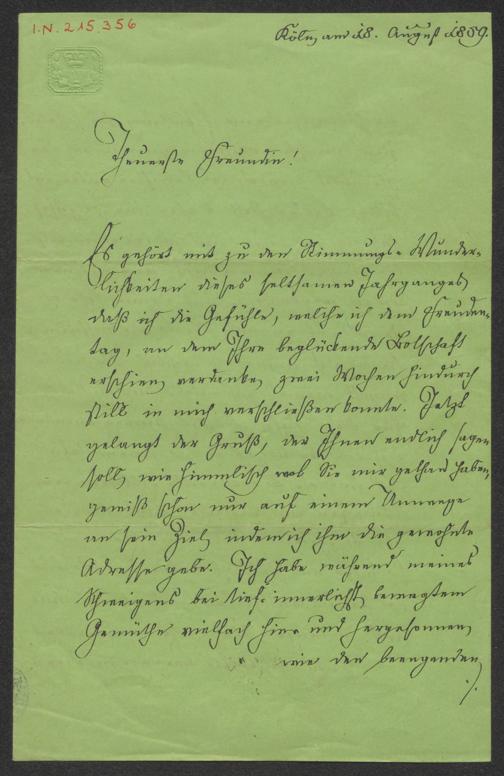 I.N. 215.356
Köln, am 18. August 1859.
Theuerste Freundin!
Es gehört mit zu den Stimmungs-Wunder-
lichkeiten dieses seltsamen Jahrganges,
daß ich die Gefühle, welche ich dem Freuden-
tag, an dem Ihre beglückende Botschaft
erschien, verdanke, zwei Wochen hindurch
still in mich verschließen konnte. Jetzt
gelangt der Gruß, der Ihnen endlich sagen
soll, wie himmlisch wohl Sie mir gethan haben,
gewiß schon nur auf einem Umwege
an sein Ziel, indem ich ihm die gewohnte
Adresse gebe. Ich habe während meines
Schweigens bei tief-innerlichst bewegtem
Gemüthe vielfach hin- und hergesonnen,
wie den beengenden
./.